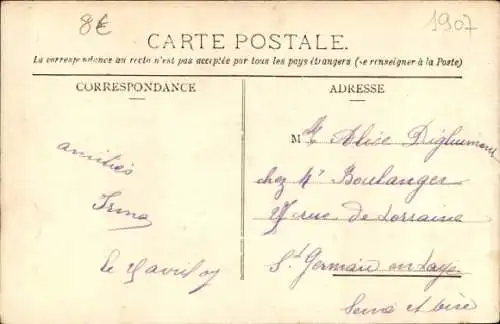 8€
1907
CARTE POSTALE.
La correspondance au recto n'est pas acceptée par tous les pays étrangers (Se renseigner à la Poste)
CORRESPONDANCE
ADRESSE
amitiés
Irma
le avril 07
Mlle Alice
chez Mr Boulanger
rue de Lorraine
St Germain en Laye
Seine et Oise